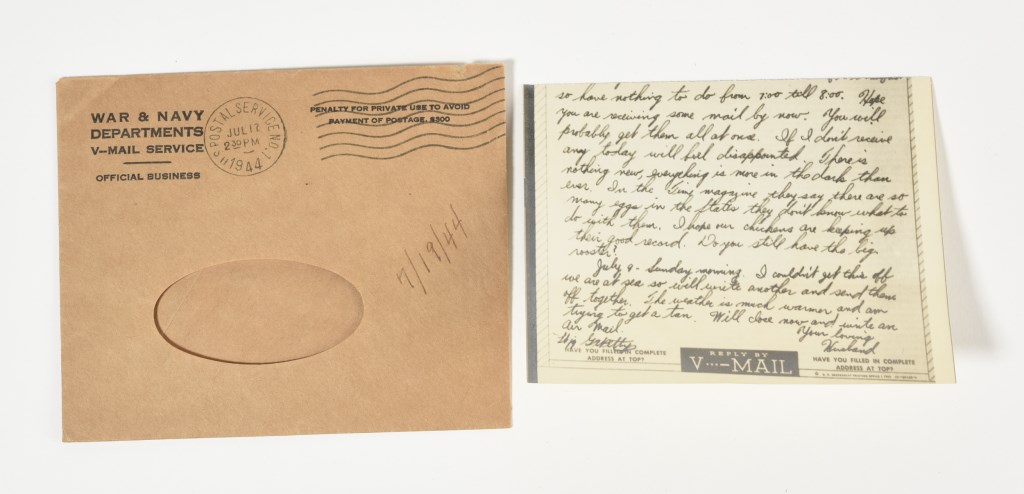 WAR & NAVY
DEPARTMENTS
V--MAIL SERVICE
OFFICIAL BUSINESS
U.S. POSTAL SERVICE NO. 1
JUL 17
2 30 PM
1944
PENALTY FOR PRIVATE USE TO AVOID
PAYMENT OF POSTAGE, $300
7/19/44
so have nothing to do from 7:00 till 8:00. Hope
you are receiving some mail by now. You will
probably get them all at once. If I don't receive
any today will feel disappointed. There is
nothing new, everything is more in the dark than
ever. In the Time magazine they say there are so
many eggs in the States they don't know what to
do with them. I hope our chickens are keeping up
their good record. Do you still have the big
rooster?
July 9 - Sunday morning. I couldn't get this off
we are at sea so will write another and send them
off together. The weather is much warmer and am
trying to get a tan. Will close now and write an
Air Mail.
Your loving
Husband
HAVE YOU FILLED IN COMPLETE
ADDRESS AT TOP?
REPLY BY
V···—MAIL
HAVE YOU FILLED IN COMPLETE
ADDRESS AT TOP?